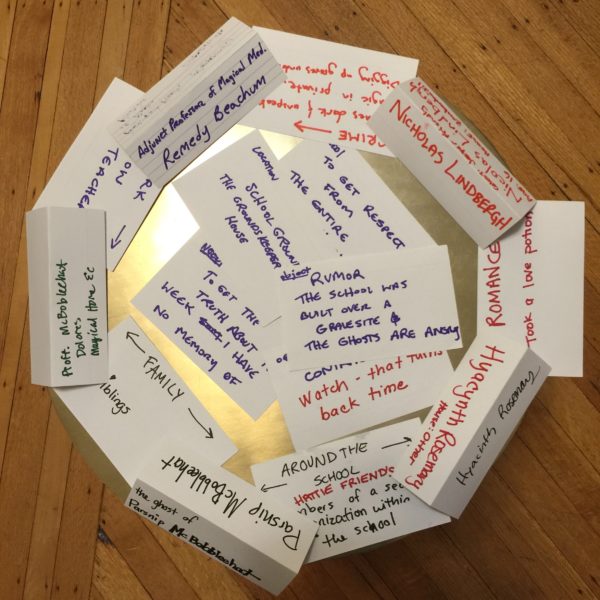 Adjunct Professor of Magical Med.
Remedy Beachum
Digging up graves
in private
dark &
CRIME
NICHOLAS LINDBERGH
TEACHER
LOCATION
SCHOOL GROUN
THE GROUNDSKEEPER
HOUSE
TO GET RESPECT
FROM
THE ENTIRE
Proff. McBobblehat
Dolores
Magical Home Ec
TO GET THE
TRUTH ABOUT
WEEK I HAVE
NO MEMORY OF
object
RUMOR
THE SCHOOL WAS
BUILT OVER A
GRAVESITE &
THE GHOSTS ARE ANGRY
Watch - that turns
back time
ROMANCE
Took a love potion
Hyacynth Rosemary
House: Other
Hyacinth Rosemary
FAMILY
iblings
AROUND THE
SCHOOL
HATTIE FRIENDS
mbers of a sec
anization within
the school
Parsnip McBobblehat
the ghost of
Parsnip McBobblehat